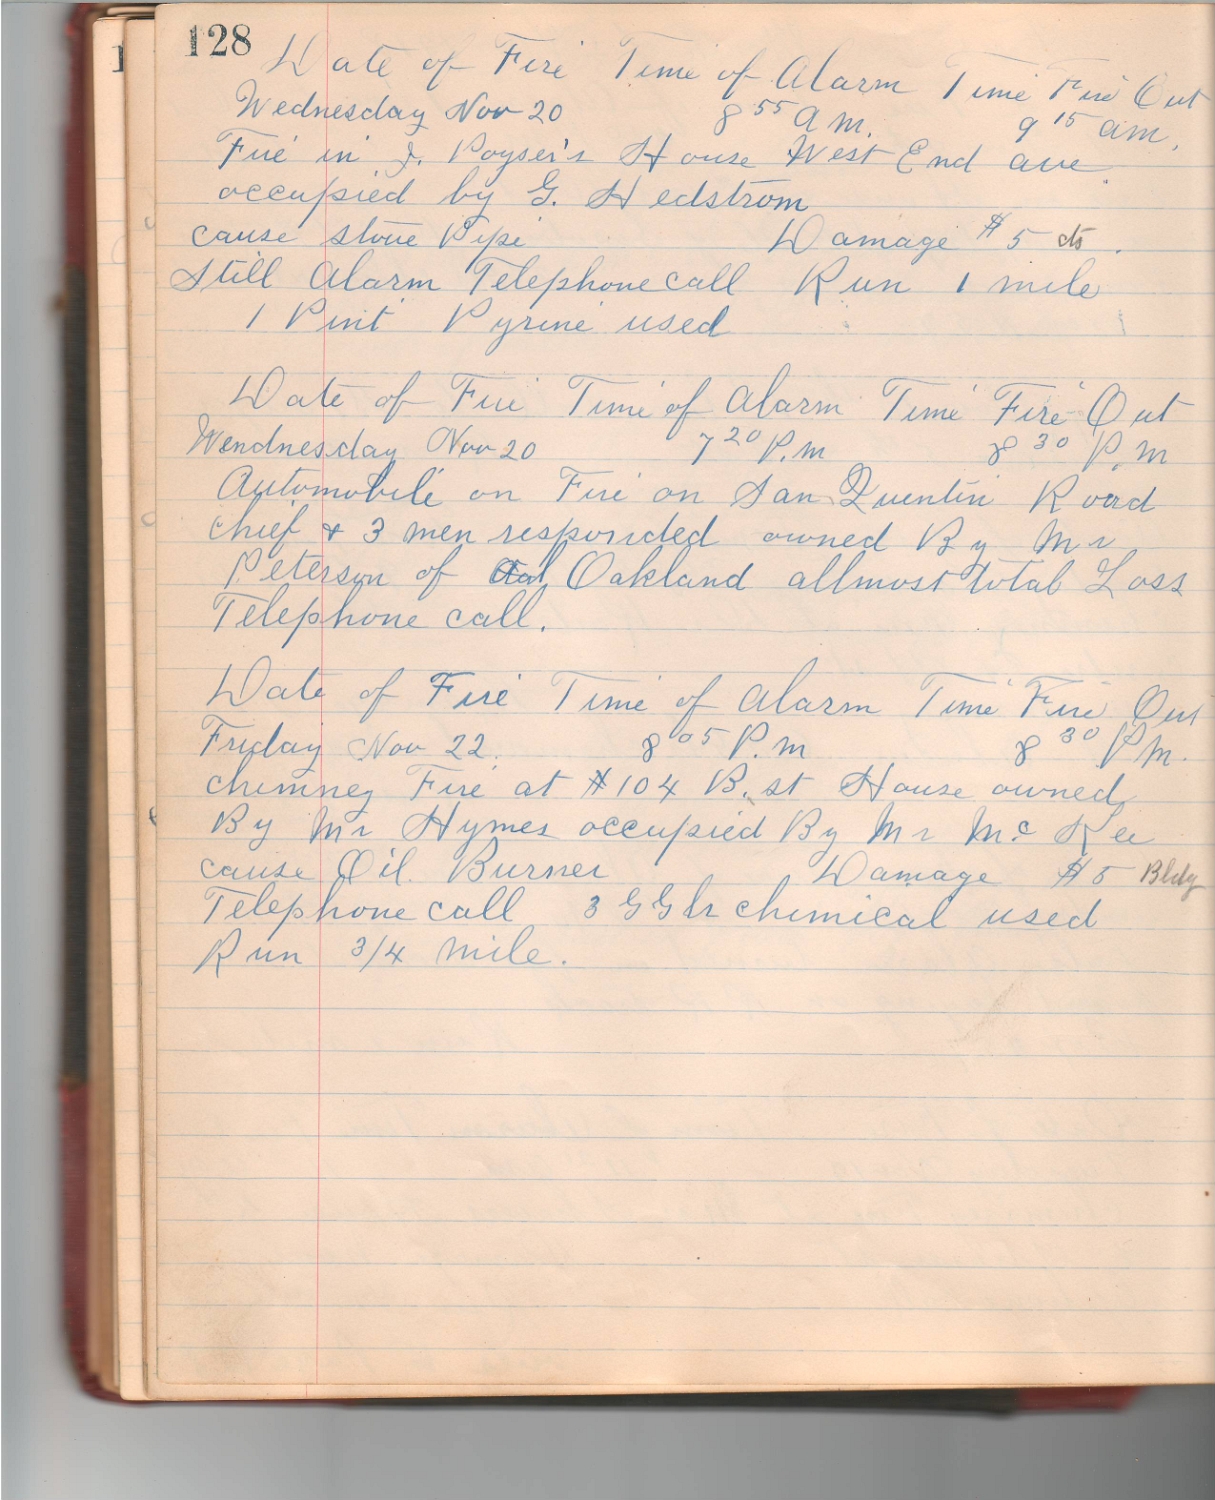 128
Date of Fire Time of Alarm Time Fire Out
Wednesday Nov 20 8 55 A M. 9 15 am.
Fire in J. Poyser's House West End ave.
occupied by G. Hedstrom
cause stove Pipe Damage $5 cts.
Still Alarm Telephone call Run 1 mile
1 Pint Pyrene used
Date of Fire Time of Alarm Time Fire Out
Wendnesday Nov 20 7 20 P.m 8 30 P.m
Automobile on Fire on San Quentin Road
chief & 3 men responded owned By Mr
Peterson of Oakland allmost total Loss
Telephone call.
Date of Fire Time of Alarm Time Fire Out
Friday Nov 22. 8 05 P.m 8 30 P m.
chimney Fire at #104 B. st House owned
By Mr Hymes occupied By Mr Mc Kee
cause Oil Burner Damage $5 Bldg
Telephone call 3 chemical used
Run 3/4 mile.